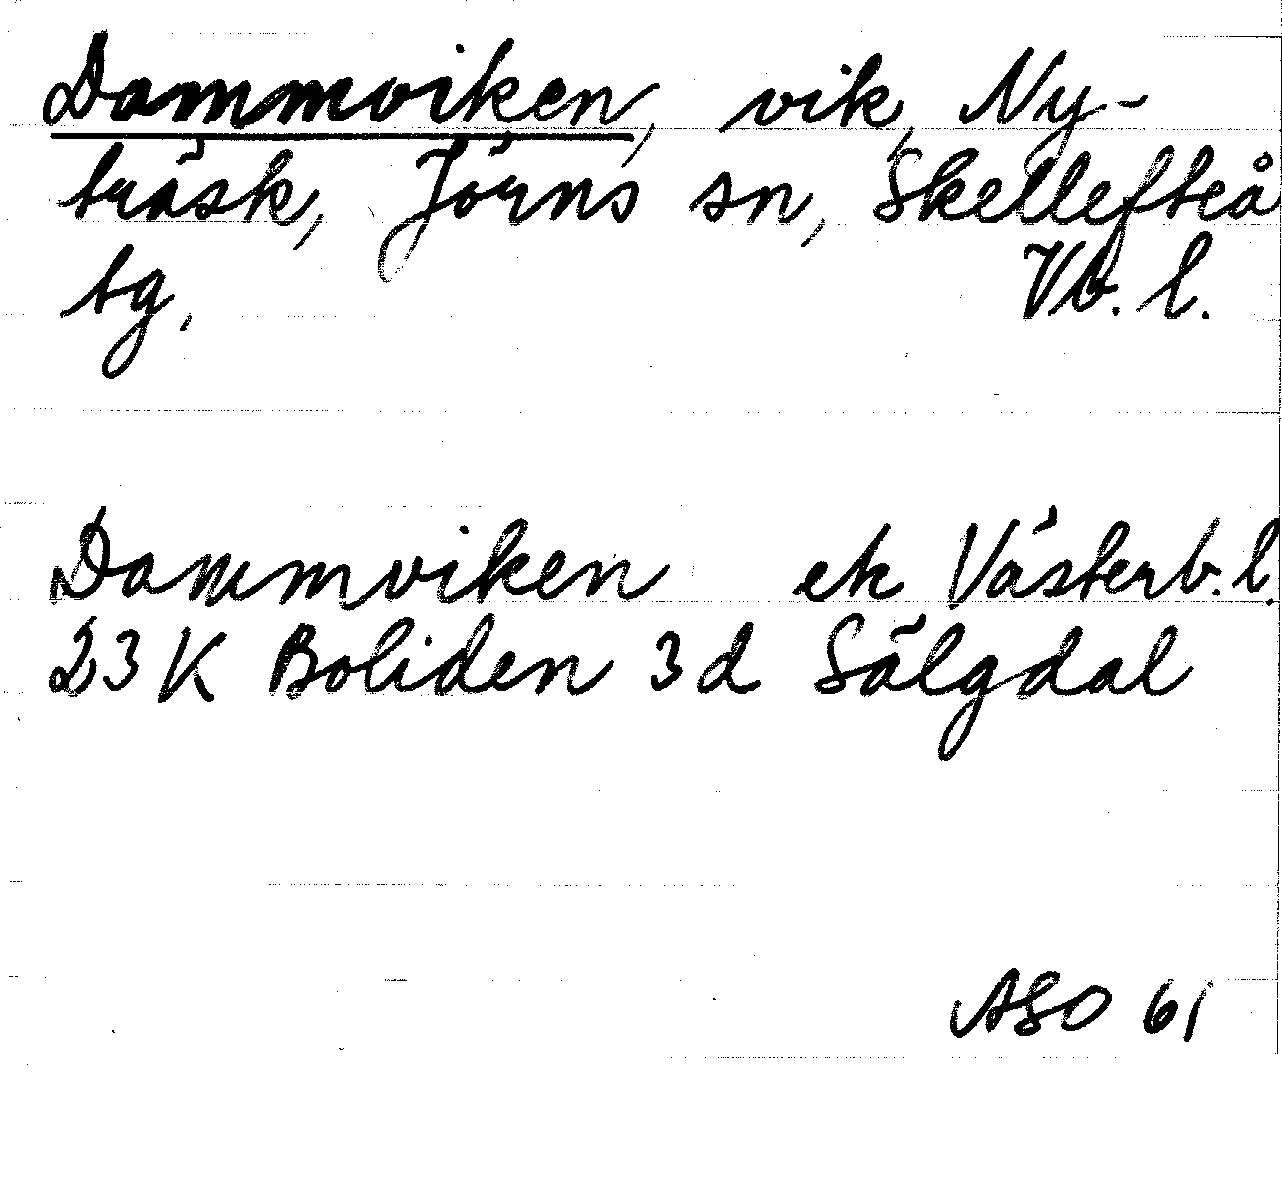 Dammviken, vik, Ny-
träsk, Jörns sn, Skellefteå
tg, Vb. l.
Dammviken ek Västerb. l.
23 K Boliden 3 d Sälgdal
ASO 61